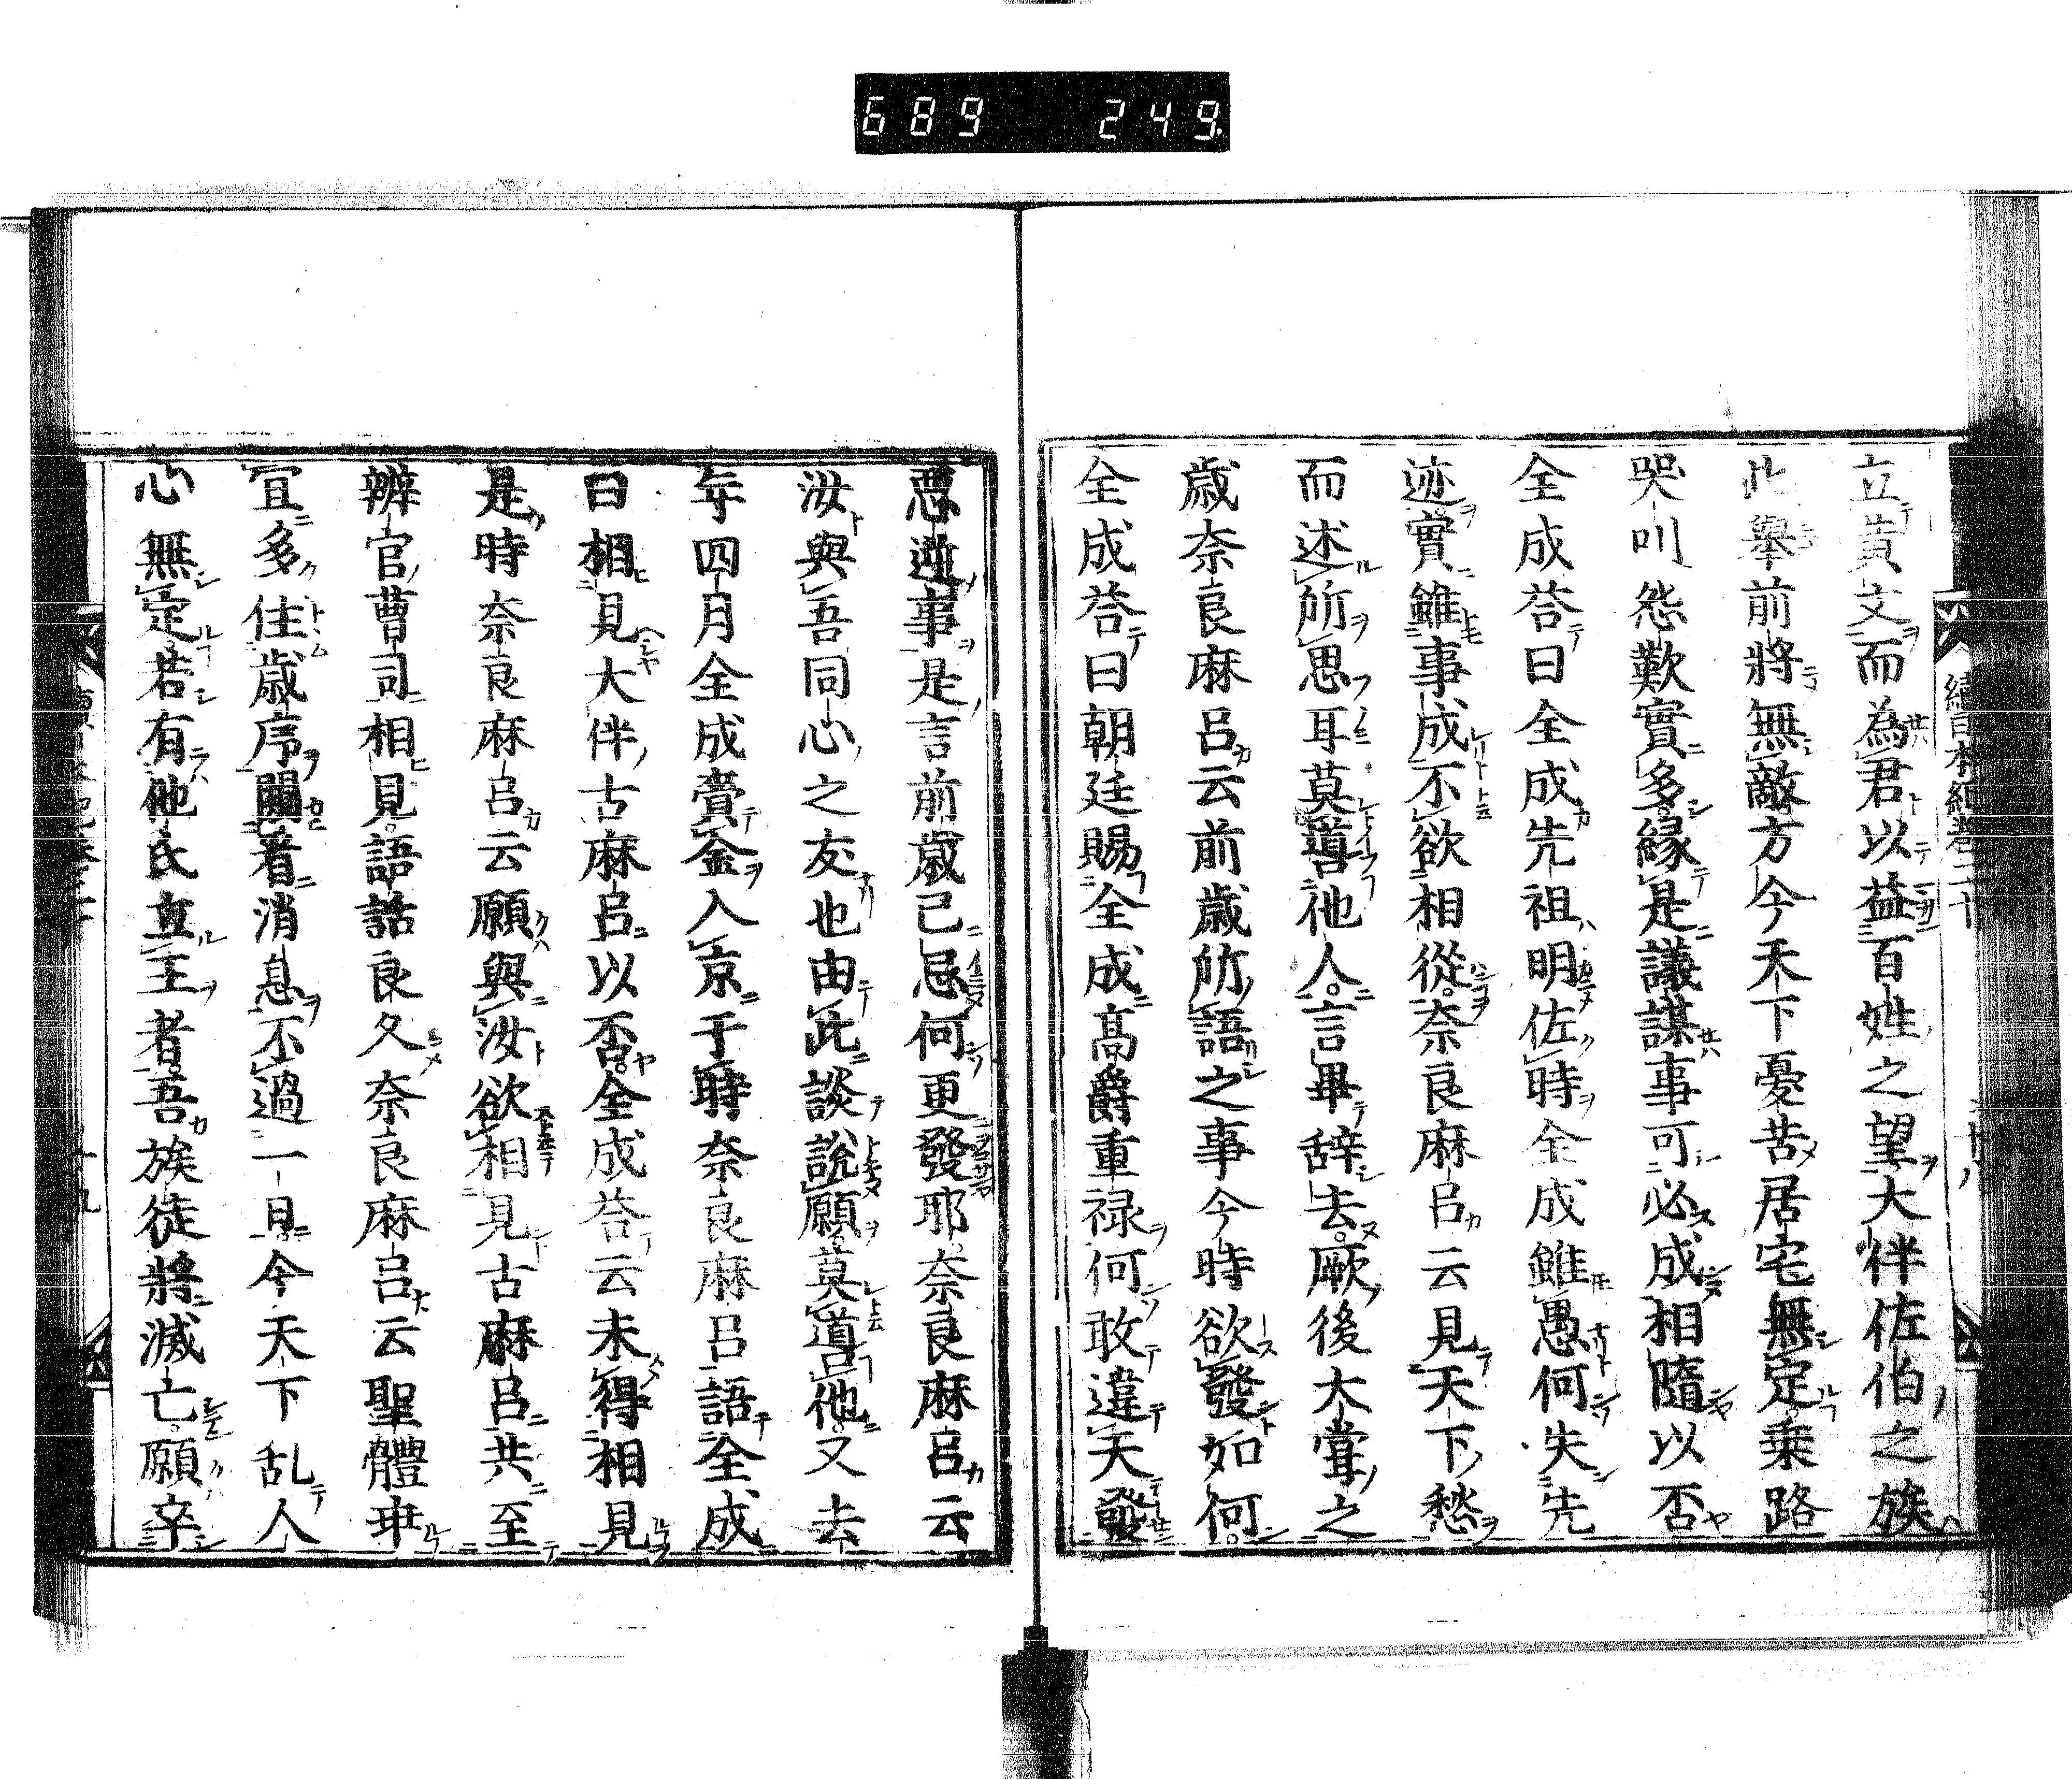 689 249.
續日本紀卷二十
立黄文而為君以益百姓之望大伴佐伯之族
此舉前將無敵方今天下憂苦居宅無定乗路
哭叫怨歎實多縁是議謀事可必成相隨以否
全成荅曰全成先祖明佐時全成雖愚何失先
迹實雖事成不欲相從奈良麻呂云見天下愁
而述所思耳莫噵他人言畢辞去厥後大甞之
歳奈良麻呂云前歳所語之事今時欲發如何
全成荅曰朝廷賜全成高爵重禄何敢違天發
悪逆事是言前歳已忌何更發耶奈良麻呂云
汝與吾同心之友也由此談説願莫噵他又去
年四月全成賷金入京于時奈良麻呂語全成
曰相見大伴古麻呂以否全成荅云未得相見
是時奈良麻呂云願與汝欲相見古麻呂共至
辨官曹司相見語話良久奈良麻呂云聖體乖
宜多住歳序闚看消息不過一日今天下乱人
心無定若有他氏立王者吾族徒將滅亡願率